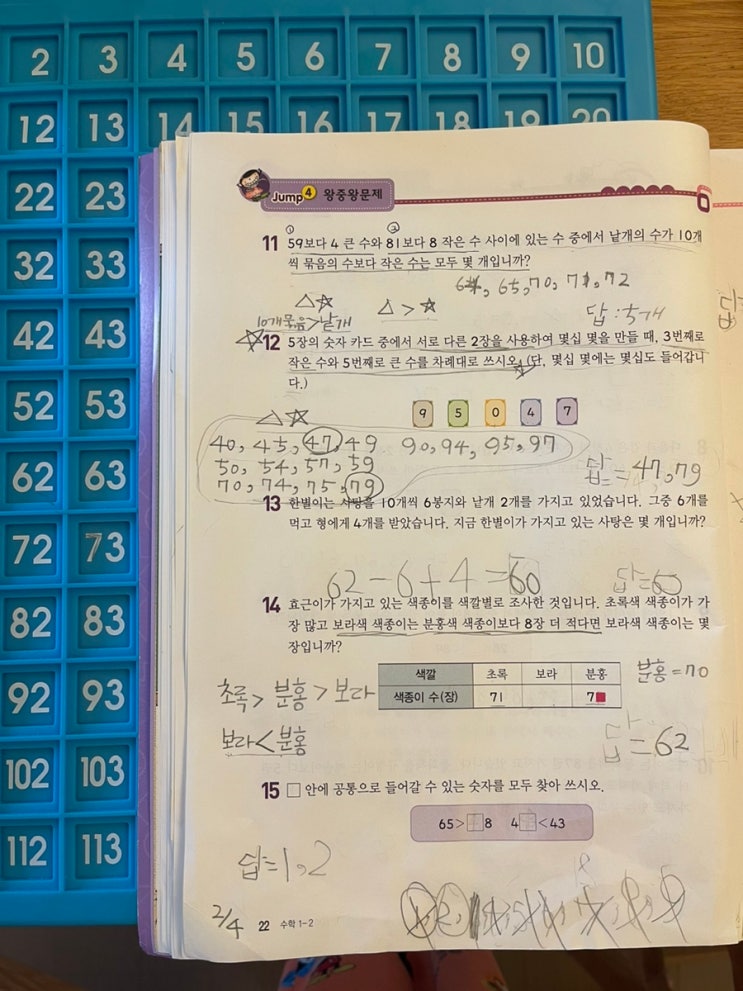 2 3 4 5 6 7 8 9 10
12 13 14 15 16 17 18 19 20
22 23
32 33
42 43
52 53
62 63
72 73
82 83
92 93
102 103
112 113
Jump 4 왕중왕문제
① ②
11 59보다 4 큰 수와 81보다 8 작은 수 사이에 있는 수 중에서 낱개의 수가 10개
씩 묶음의 수보다 작은 수는 모두 몇 개입니까?
65, 70, 71, 72
△☆ △>☆ 답:5개
10개묶음>낱개
☆12 5장의 숫자 카드 중에서 서로 다른 2장을 사용하여 몇십 몇을 만들 때, 3번째로
작은 수와 5번째로 큰 수를 차례대로 쓰시오. (단, 몇십 몇에는 몇십도 들어갑니
다.)
9 5 0 4 7
△☆
40, 45, 47, 49 90, 94, 95, 97
50, 54, 57, 59
70, 74, 75, 79
답=47,79
13 한별이는 사탕을 10개씩 6봉지와 낱개 2개를 가지고 있었습니다. 그중 6개를
먹고 형에게 4개를 받았습니다. 지금 한별이가 가지고 있는 사탕은 몇 개입니까?
62-6+4=60 답=60
14 효근이가 가지고 있는 색종이를 색깔별로 조사한 것입니다. 초록색 색종이가 가
장 많고 보라색 색종이는 분홍색 색종이보다 8장 더 적다면 보라색 색종이는 몇
장입니까?
색깔 초록 보라 분홍
색종이 수(장) 71 7■
분홍=70
초록>분홍>보라
보라<분홍
답=62
15 □ 안에 공통으로 들어갈 수 있는 숫자를 모두 찾아 쓰시오.
65>□8 4□<43
답=1,2
2/4
22 수학 1-2